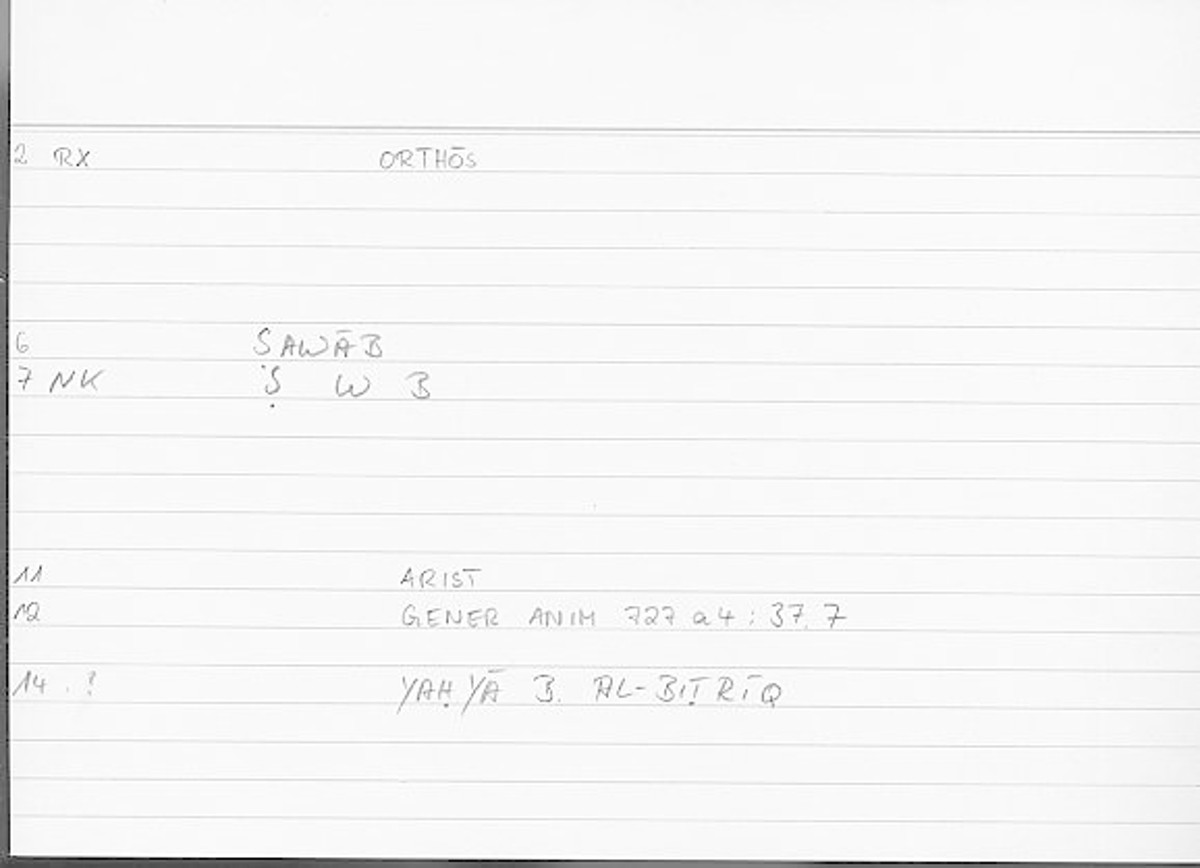 2 RX ORTHŌS
6 ṢAWĀB
7 NK Ṣ W B
11 ARIST
12 GENER ANIM 727 a 4 : 37.7
14 . ? YAḤYĀ B. AL-BIṬRĪQ